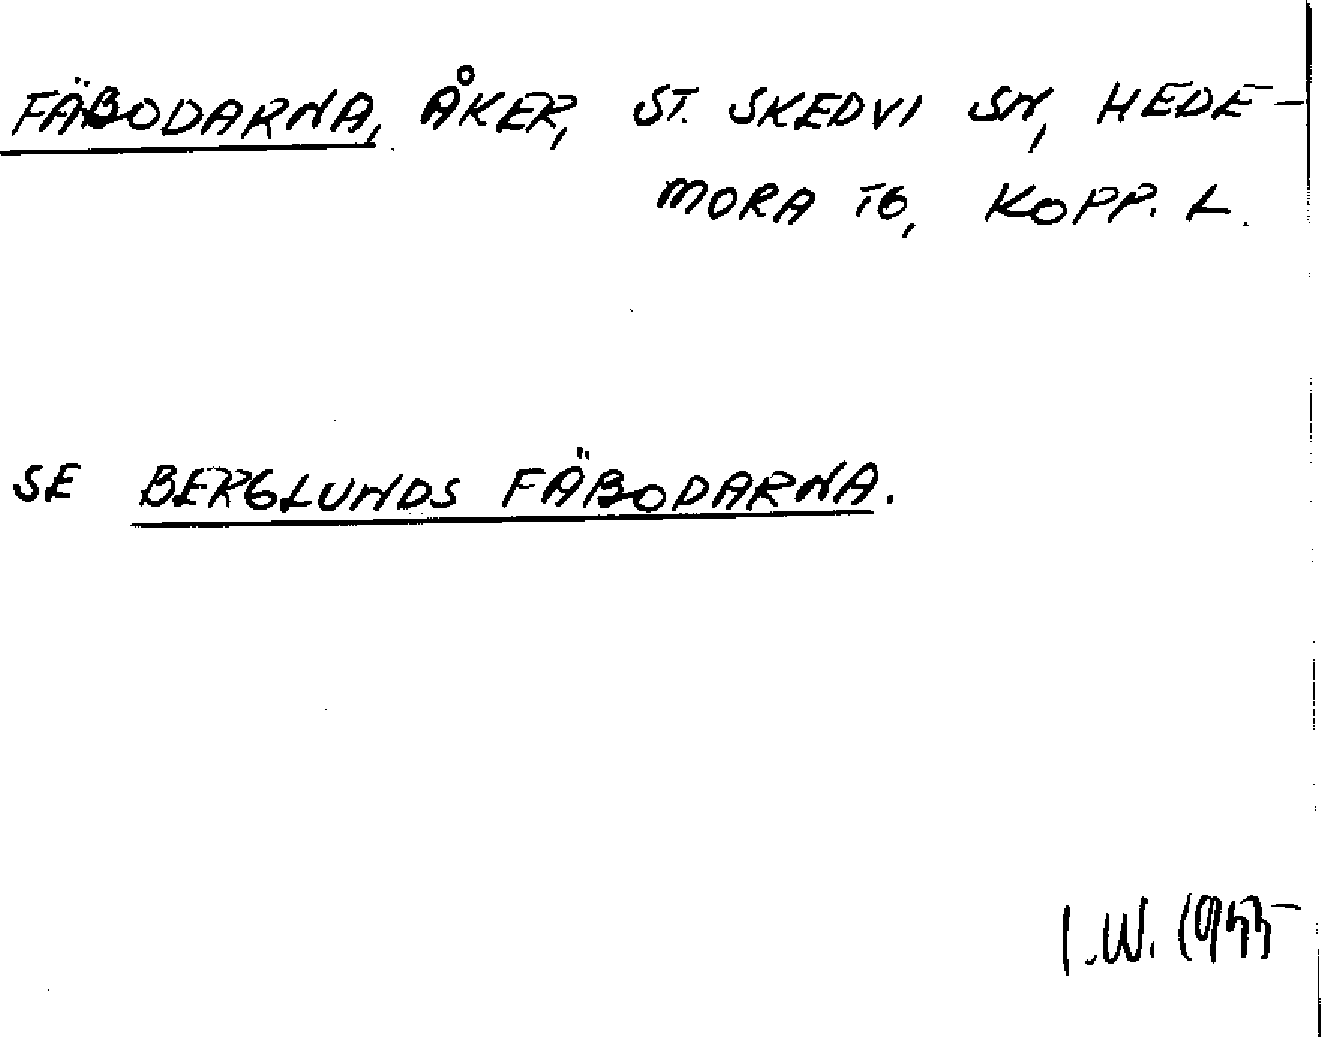 FÄBODARNA, ÅKER, ST. SKEDVI SN, HEDE-
MORA TG, KOPP. L.
SE BERGLUNDS FÄBODARNA.
I.W. 1955